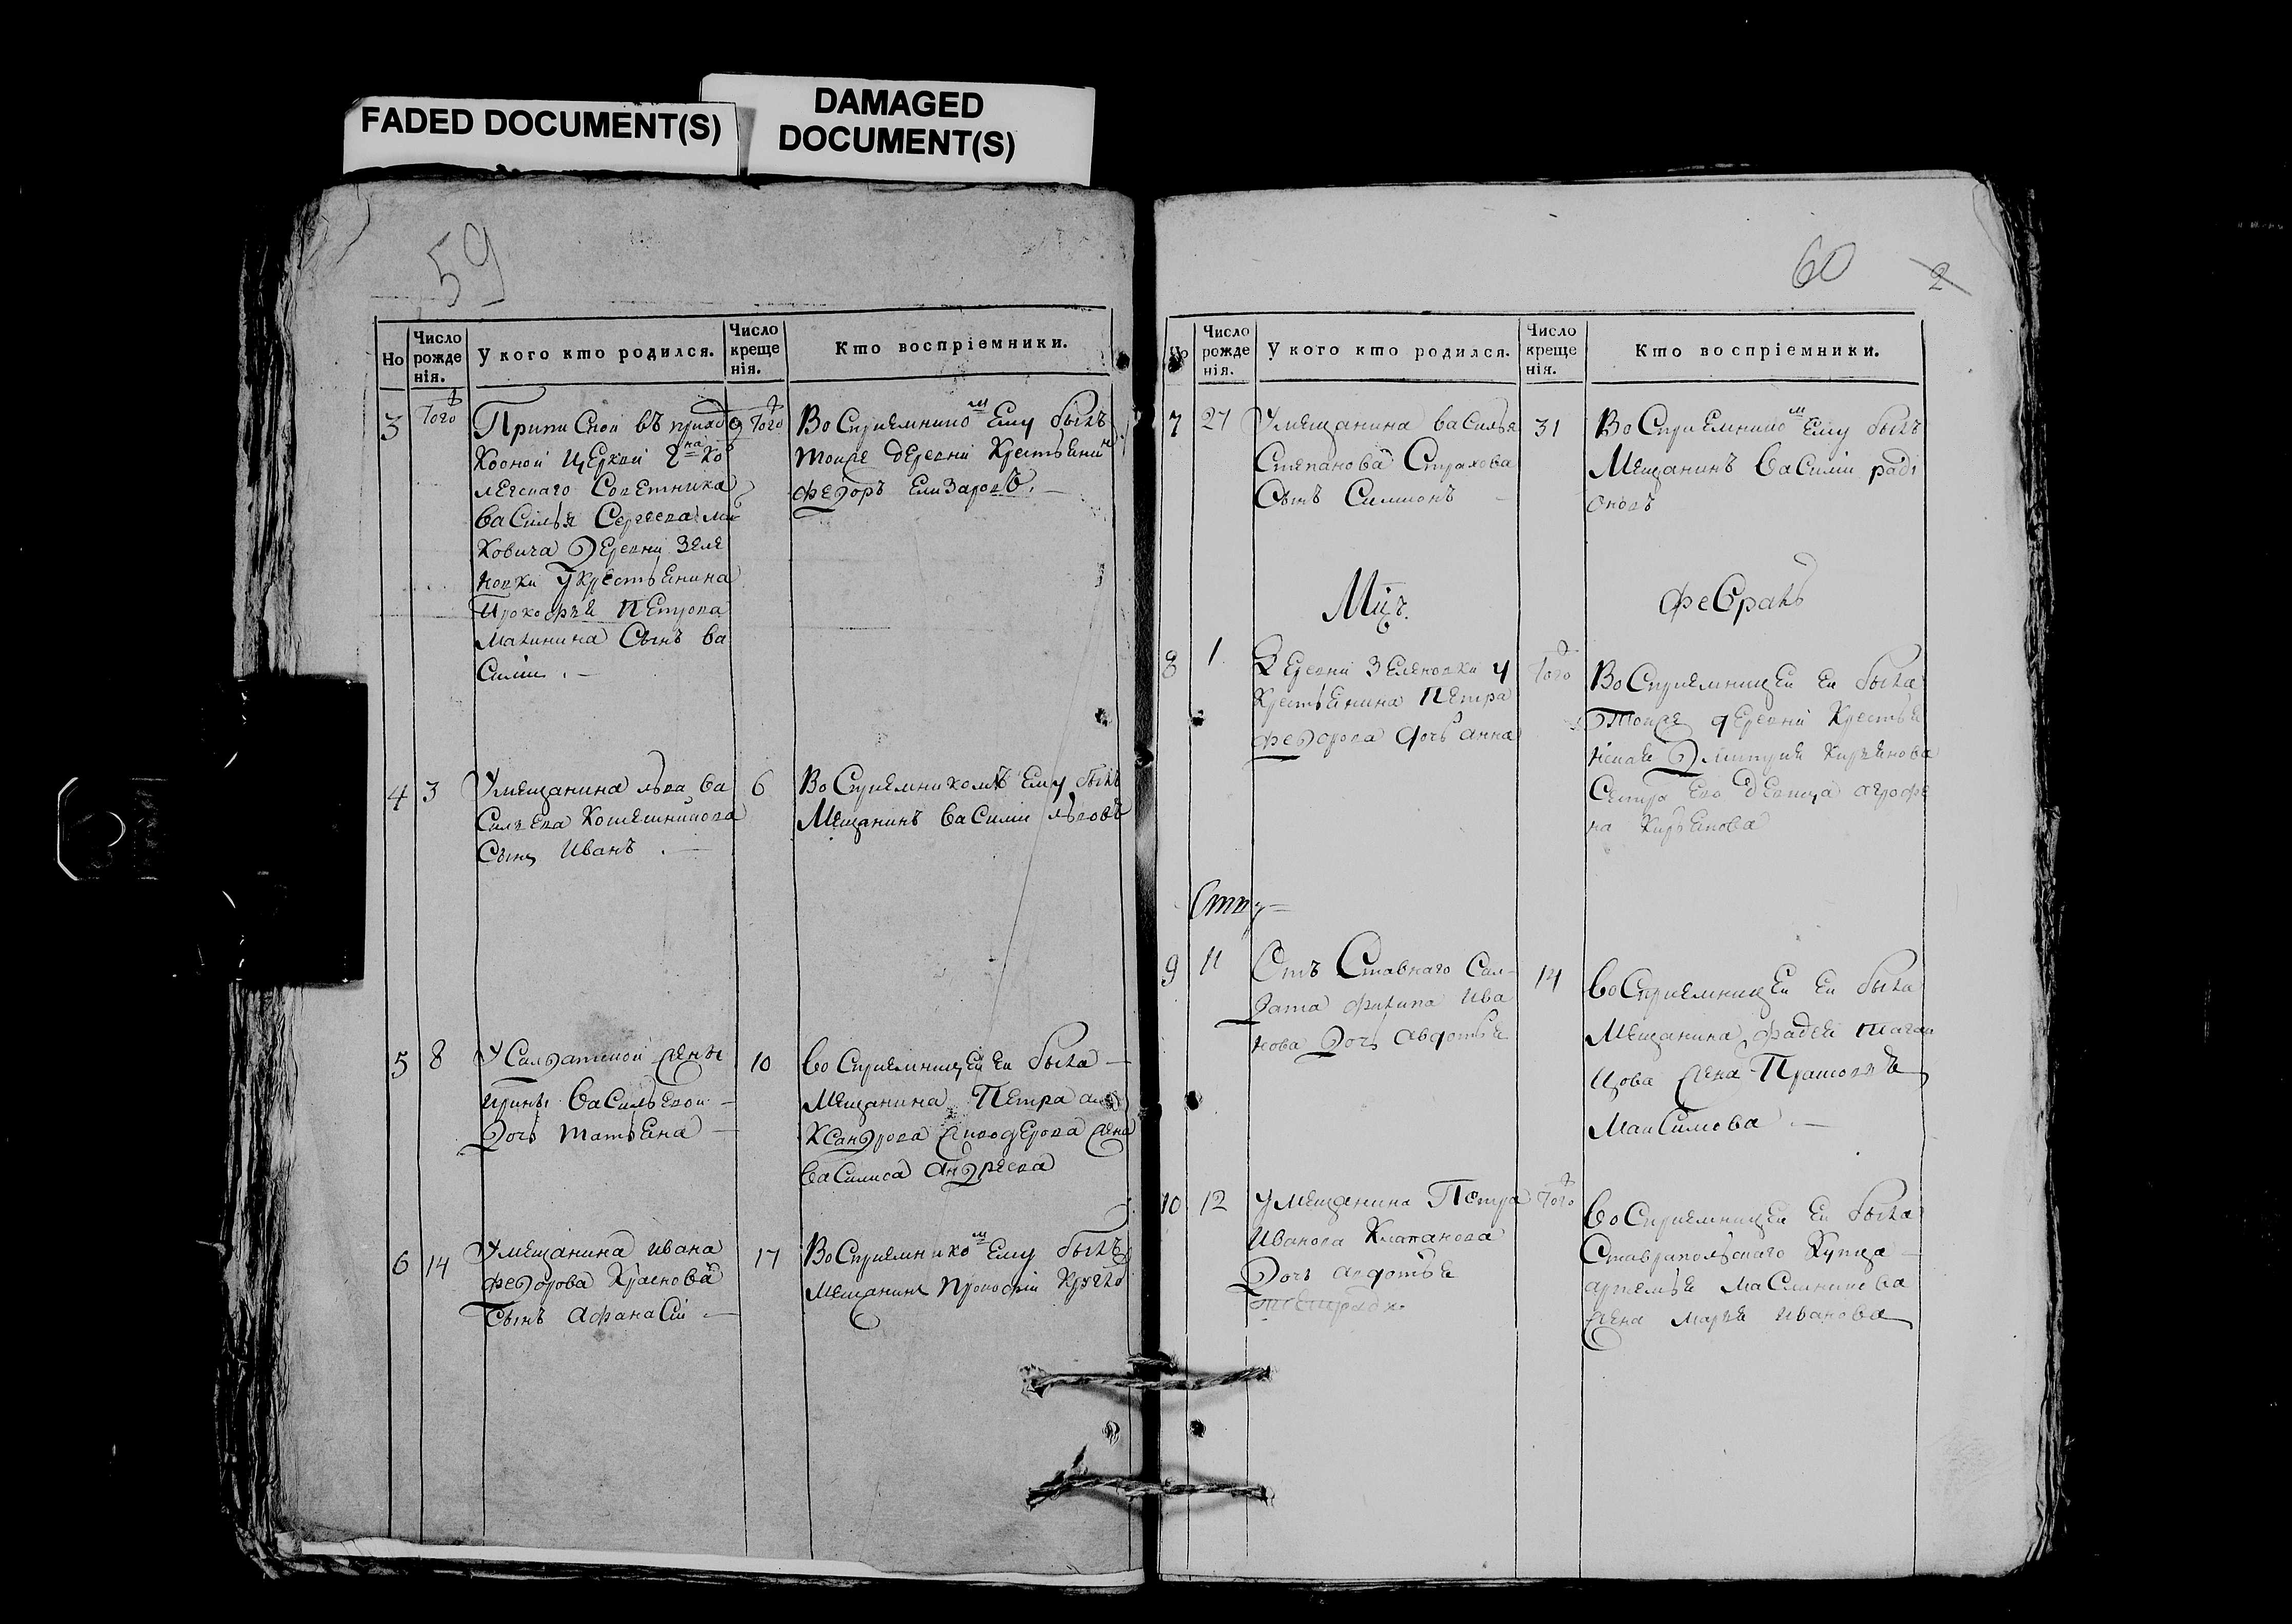 FADED DOCUMENT(S)
DAMAGED
DOCUMENT(S)
59
Но
Число рожде нія.
У кого кто родился.
Число креще нія.
Кто воспріемники.
3
Того
Приписной въ приход
ской церкви
Советника
Василья Сергеева
ковича Деревни Зеле
новки у крестьенина
Прокофъе Петрова
Малинина Сынъ Ва
силии . —
Того
Восприемнико м Ему былъ
тоиже деревни Крестьени н
Федоръ Елизаровъ. —
4
3
У мещанина лва Ва
сильева
Сынъ Иванъ . —
6
Восприемникомъ Ему былъ
Мещанинъ Василии лвовъ
5
8
У Салдатской жены
Ирины Васильевой —
Дочь татьена —
10
Восприемницеи Еи была —
Мещанина Петра але
ксандрова жена
Василиса Андреева
6
14
У мещанина Ивана
Федорова Краснова
Сынъ Афанасии —
17
Восприемнико м Ему былъ
Мещанинъ Прокофии
60
2
Но
Число рожде нія.
У кого кто родился.
Число креще нія.
Кто воспріемники.
7
27
У мещанина Василья
Степанова Страхова
Сынъ Симионъ —
31
Восприемнико м Ему былъ
Мещанинъ Василии радı
оновъ
Мцъ.
Февраль
8
1
Деревни Зеленовки у
Крестьенина Петра
Федорова дочь анна
Того
Восприемницеи Еи была
Тоиже деревни Крестье
нина Дмитрие Кирьенова
Сестра Ево девица агрофе
на Кирьенова
9
11
Отъ Ставнаго Сал-
дата филипа Ива
нова Дочь авдотье
14
Восприемницеи Еи была
Мещанина фадеи
цова жена Прасковье
Максимова . —
10
12
У мещанина Петра
Иванова Клапанова
Дочь авдотье
Того
Восприемницеи Еи была
Ставрапольскаго Купца —
артемье Масленикова
жена марье Иванова